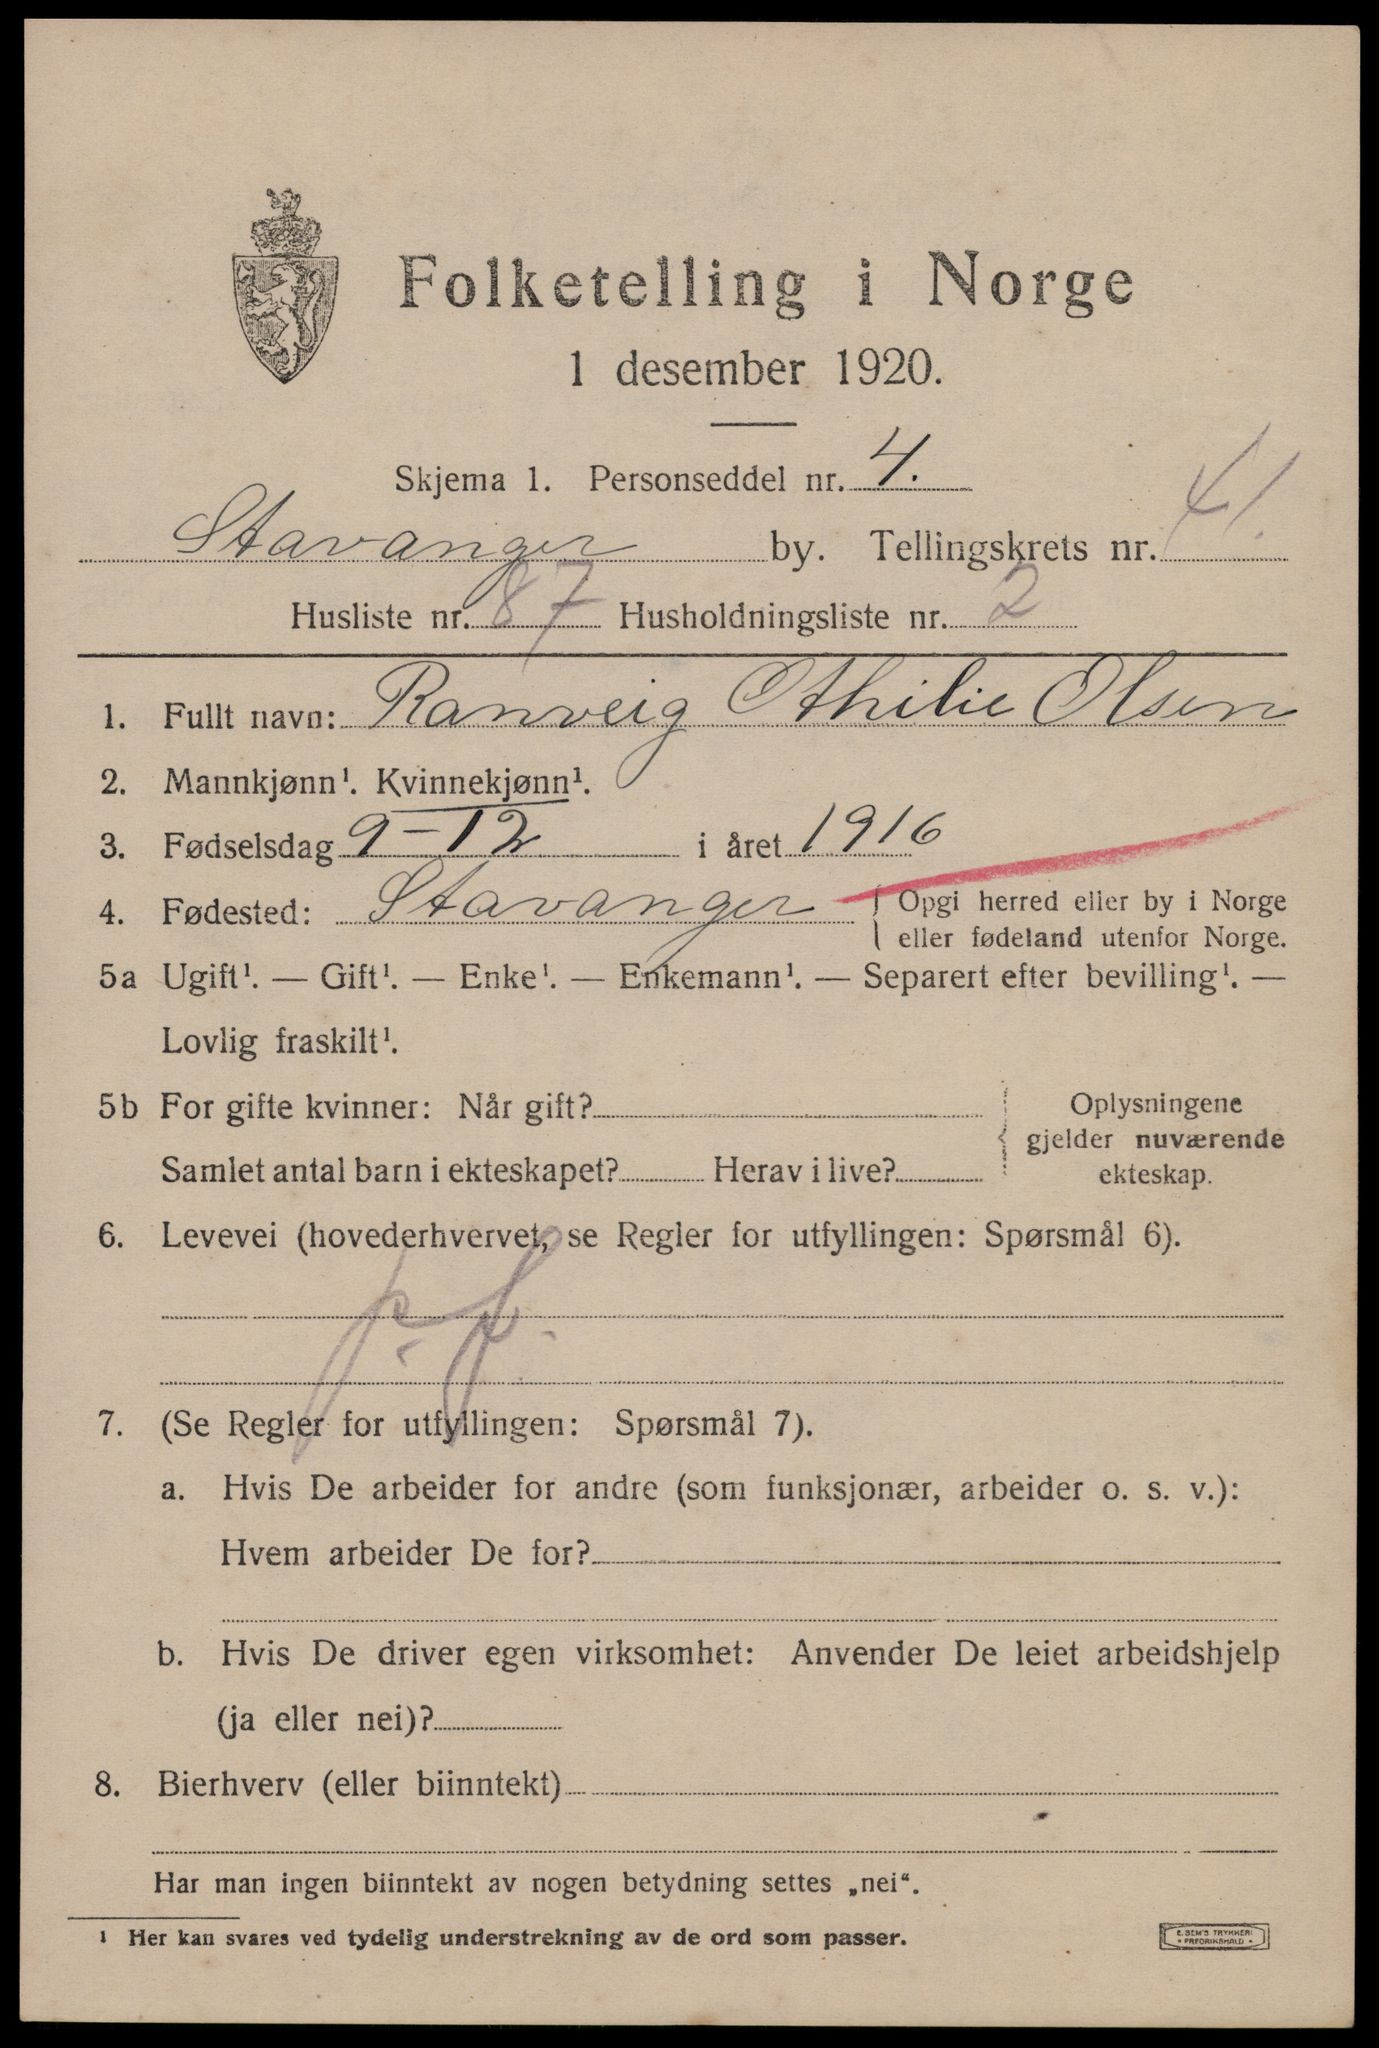 Folketelling i Norge
1 desember 1920.
Skjema 1. Personseddel nr. 4.
Stavanger by. Tellingskrets nr. 41.
Husliste nr. 87 Husholdningsliste nr. 2
1. Fullt navn: Ranveig Othilie Olsen
2. Mannkjønn¹. Kvinnekjønn¹.
3. Fødselsdag 9-12 i året 1916
4. Fødested: Stavanger { Opgi herred eller by i Norge
eller fødeland utenfor Norge.
5a Ugift¹. — Gift¹. — Enke¹. — Enkemann¹. — Separert efter bevilling¹. —
Lovlig fraskilt¹.
5b For gifte kvinner: Når gift? { Oplysningene
gjelder nuværende
Samlet antal barn i ekteskapet? Herav i live? ekteskap.
6. Levevei (hovederhvervet, se Regler for utfyllingen: Spørsmål 6).
7. (Se Regler for utfyllingen: Spørsmål 7).
a. Hvis De arbeider for andre (som funksjonær, arbeider o. s. v.):
Hvem arbeider De for?
b. Hvis De driver egen virksomhet: Anvender De leiet arbeidshjelp
(ja eller nei)?
8. Bierhverv (eller biinntekt)
Har man ingen biinntekt av nogen betydning settes „nei“.
¹ Her kan svares ved tydelig understrekning av de ord som passer.
E. SEM'S TRYKKERI
FREDRIKSHALD